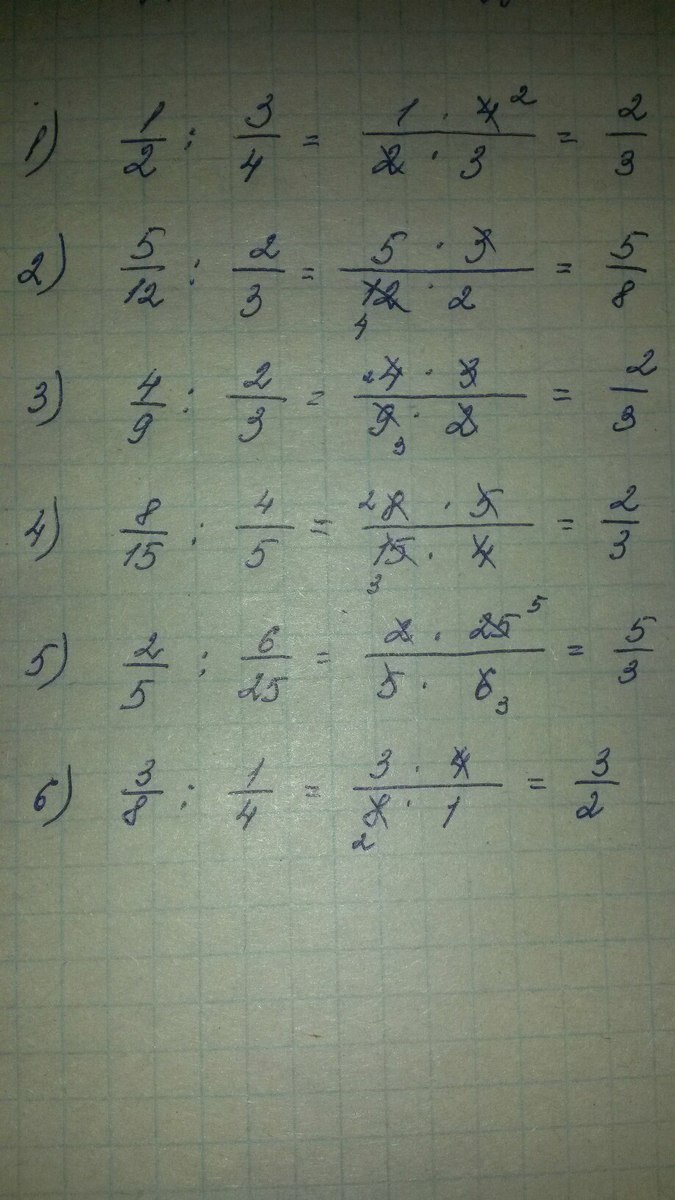 1) 1/2 : 3/4 = (1 · 4 2)/(2 · 3) = 2/3
2) 5/12 : 2/3 = (5 · 3)/(12 4 · 2) = 5/8
3) 4/9 : 2/3 = (2 4 · 3)/(9 3 · 2) = 2/3
4) 8/15 : 4/5 = (2 8 · 5)/(15 3 · 4) = 2/3
5) 2/5 : 6/25 = (2 · 25 5)/(5 · 6 3) = 5/3
6) 3/8 : 1/4 = (3 · 4)/(8 2 · 1) = 3/2